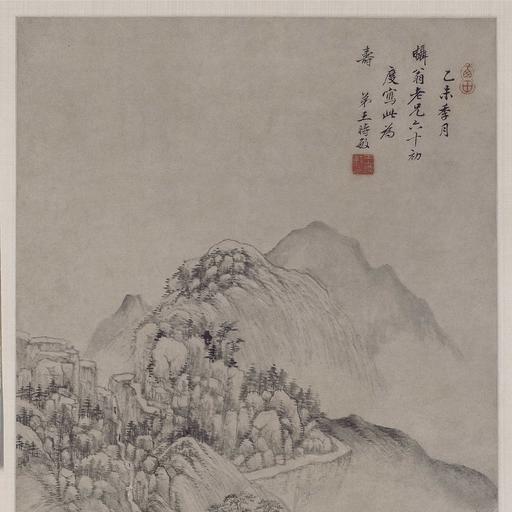 乙未季月
翁老兄六十初
度寫此為
壽 弟王時敏